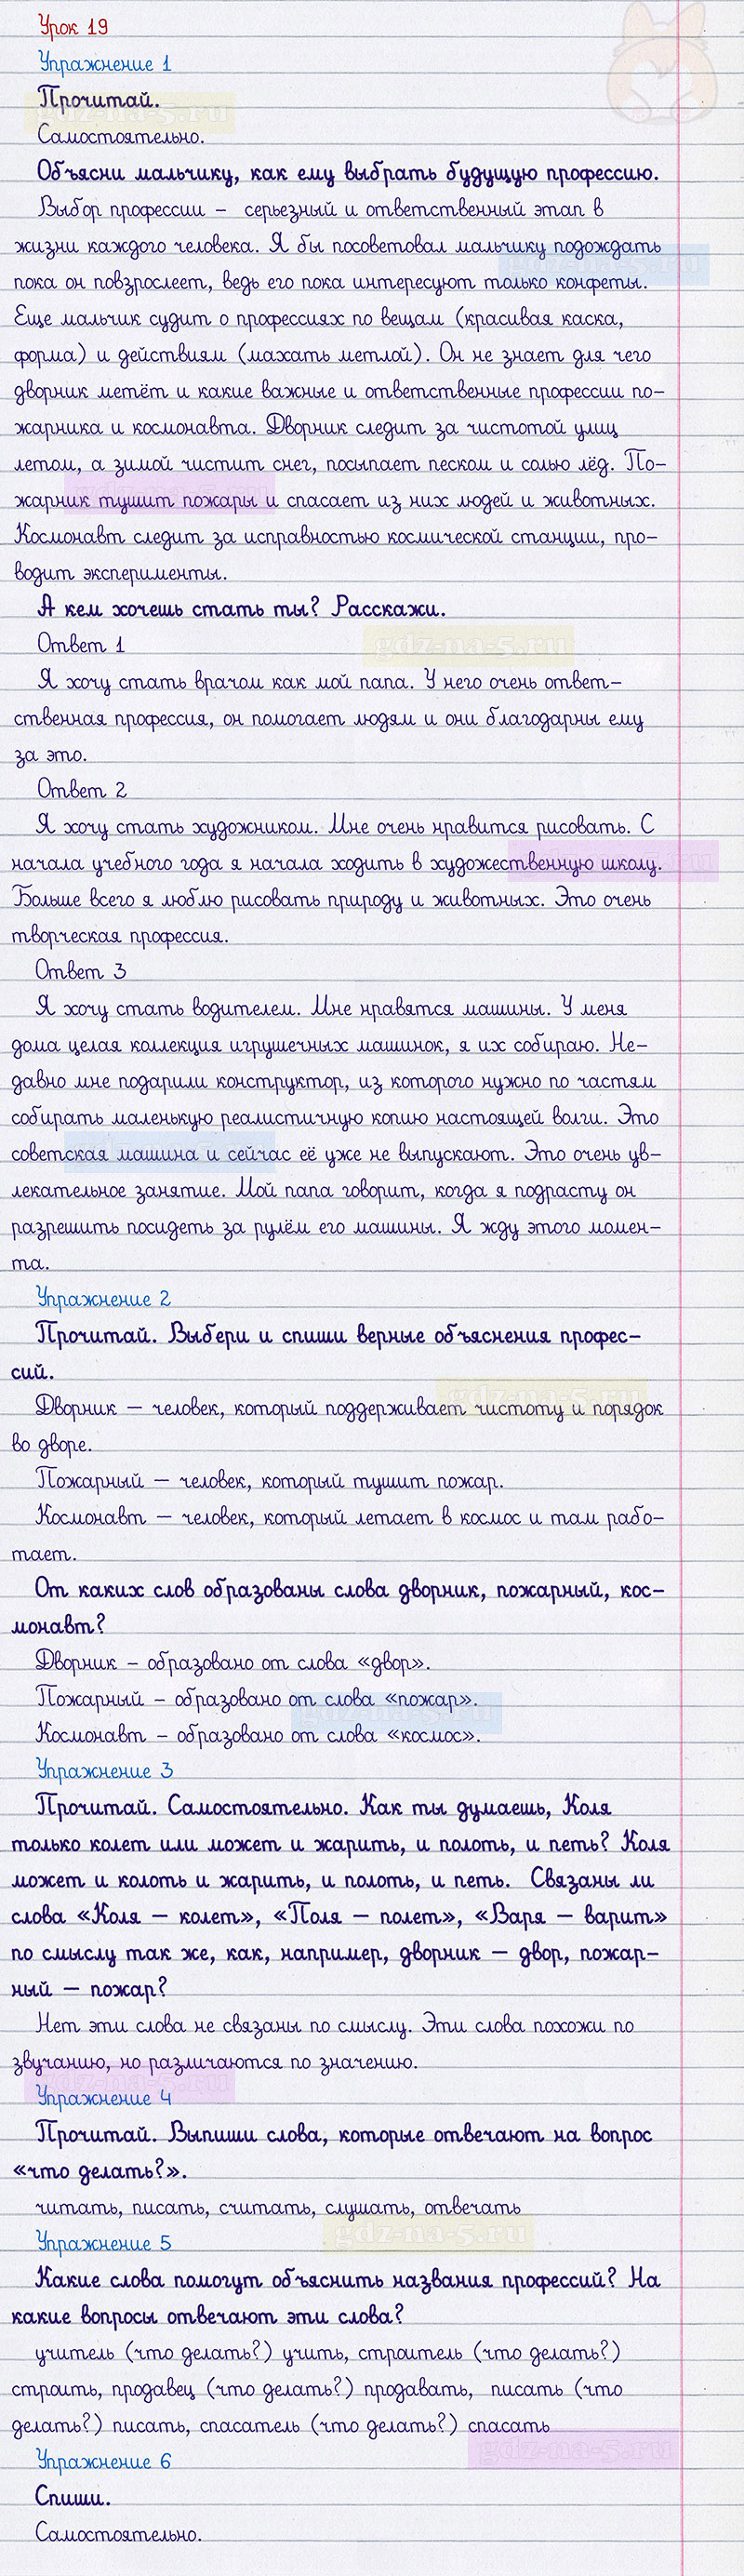 Урок 19
Упражнение 1
Прочитай.
Самостоятельно.
Объясни мальчику, как ему выбрать будущую профессию.
Выбор профессии – серьезный и ответственный этап в
жизни каждого человека. Я бы посоветовал мальчику подождать
пока он повзрослеет, ведь его пока интересуют только конфеты.
Еще мальчик судит о профессиях по вещам (красивая каска,
форма) и действиям (махать метлой). Он не знает для чего
дворник метёт и какие важные и ответственные профессии по-
жарника и космонавта. Дворник следит за чистотой улиц
летом, а зимой чистит снег, посыпает песком и солью лёд. По-
жарник тушит пожары и спасает из них людей и животных.
Космонавт следит за исправностью космической станции, про-
водит эксперименты.
А кем хочешь стать ты? Расскажи.
Ответ 1
Я хочу стать врачом как мой папа. У него очень ответ-
ственная профессия, он помогает людям и они благодарны ему
за это.
Ответ 2
Я хочу стать художником. Мне очень нравится рисовать. С
начала учебного года я начала ходить в художественную школу.
Больше всего я люблю рисовать природу и животных. Это очень
творческая профессия.
Ответ 3
Я хочу стать водителем. Мне нравятся машины. У меня
дома целая коллекция игрушечных машинок, я их собираю. Не-
давно мне подарили конструктор, из которого нужно по частям
собирать маленькую реалистичную копию настоящей волги. Это
советская машина и сейчас её уже не выпускают. Это очень ув-
лекательное занятие. Мой папа говорит, когда я подрасту он
разрешить посидеть за рулём его машины. Я жду этого момен-
та.
Упражнение 2
Прочитай. Выбери и спиши верные объяснения профес-
сий.
Дворник — человек, который поддерживает чистоту и порядок
во дворе.
Пожарный — человек, который тушит пожар.
Космонавт — человек, который летает в космос и там рабо-
тает.
От каких слов образованы слова дворник, пожарный, кос-
монавт?
Дворник – образовано от слова «двор».
Пожарный – образовано от слова «пожар».
Космонавт – образовано от слова «космос».
Упражнение 3
Прочитай. Самостоятельно. Как ты думаешь, Коля
только колет или может и жарить, и полоть, и петь? Коля
может и колоть и жарить, и полоть, и петь. Связаны ли
слова «Коля — колет», «Поля — полет», «Варя — варит»
по смыслу так же, как, например, дворник — двор, пожар-
ный — пожар?
Нет эти слова не связаны по смыслу. Эти слова похожи по
звучанию, но различаются по значению.
Упражнение 4
Прочитай. Выпиши слова, которые отвечают на вопрос
«что делать?».
читать, писать, считать, слушать, отвечать
Упражнение 5
Какие слова помогут объяснить названия профессий? На
какие вопросы отвечают эти слова?
учитель (что делать?) учить, строитель (что делать?)
строить, продавец (что делать?) продавать, писать (что
делать?) писать, спасатель (что делать?) спасать
Упражнение 6
Спиши.
Самостоятельно.
gdz-na-5.ru
gdz-na-5.ru
gdz-na-5.ru
gdz-na-5.ru
gdz-na-5.ru
gdz-na-5.ru
gdz-na-5.ru
gdz-na-5.ru
gdz-na-5.ru
gdz-na-5.ru
gdz-na-5.ru